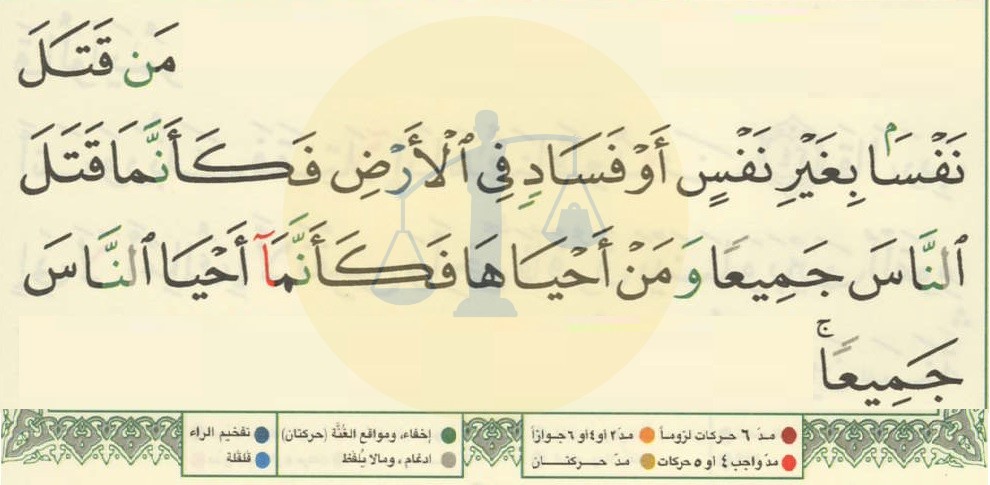 مَن قَتَلَ
نَفْسَۢا بِغَيْرِ نَفْسٍ أَوْ فَسَادٍ فِى ٱلْأَرْضِ فَكَأَنَّمَا قَتَلَ
ٱلنَّاسَ جَمِيعًا وَمَنْ أَحْيَاهَا فَكَأَنَّمَآ أَحْيَا ٱلنَّاسَ
جَمِيعًاۚ
مدّ ٦ حركات لزوماً مدّ ٢ أو ٤ أو ٦ جوازاً إخفاء، ومواقع الغُنَّة (حركتان) تفخيم الراء
مدّ واجب ٤ أو ٥ حركات مدّ حركتـــان ادغام، ومالا يُلفَظ قلقلة